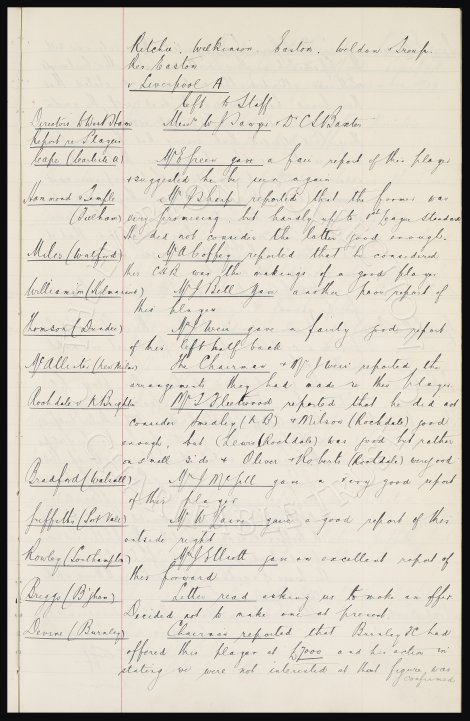 Ritchie, Wilkinson, Easton, Weldon & Troup.
Res Easton
v Liverpool A
left to Staff
Directors to West Ham Messrs W J Sawyer & Dr C S Baxter
Report re Players
Cape (Carlisle U) Mr E Green gave a fair report of this player
& suggested he be seen again
Hammond & Temple Mr J Sharp reported that the former was
(Fulham) very promising, but hardly up to 1st League Standard
He did not consider the latter good enough.
Miles (Watford) Mr A Coffey reported that he considered
this CHB was the makings of a good player
Williamson (St Mirrens) Mr J Bell gave another poor report of
this player
Thomson (Dundee) Mr J Weir gave a fairly good report
of this left half back.
McAllister (New Milns) The Chairman & Mr J Weir reported the
arrangements they had made re this player.
Rochdale v N Brighton Mr T Fleetwood reported that he did not
consider Smedley (N B) & Milson (Rochdale) good
enough, but Lewis (Rochdale) was good but rather
on small side & Oliver & Roberts (Rochdale) very good
Bradford (Walsall) Mr J McGill gave a very good report
of this player
Griffiths (Port Vale) Mr W gave a good report of this
outside right
Rowley (Southampton) Mr J Elliott gave an excellent report of
this forward
Briggs (B'gham) Letter read asking us to make an offer
Decided not to make one at present.
Devine (Burnley) Chairman reported that Burnley FC had
offered this player at £7000 and his action in
stating we were not interested at that figure was
confirmed